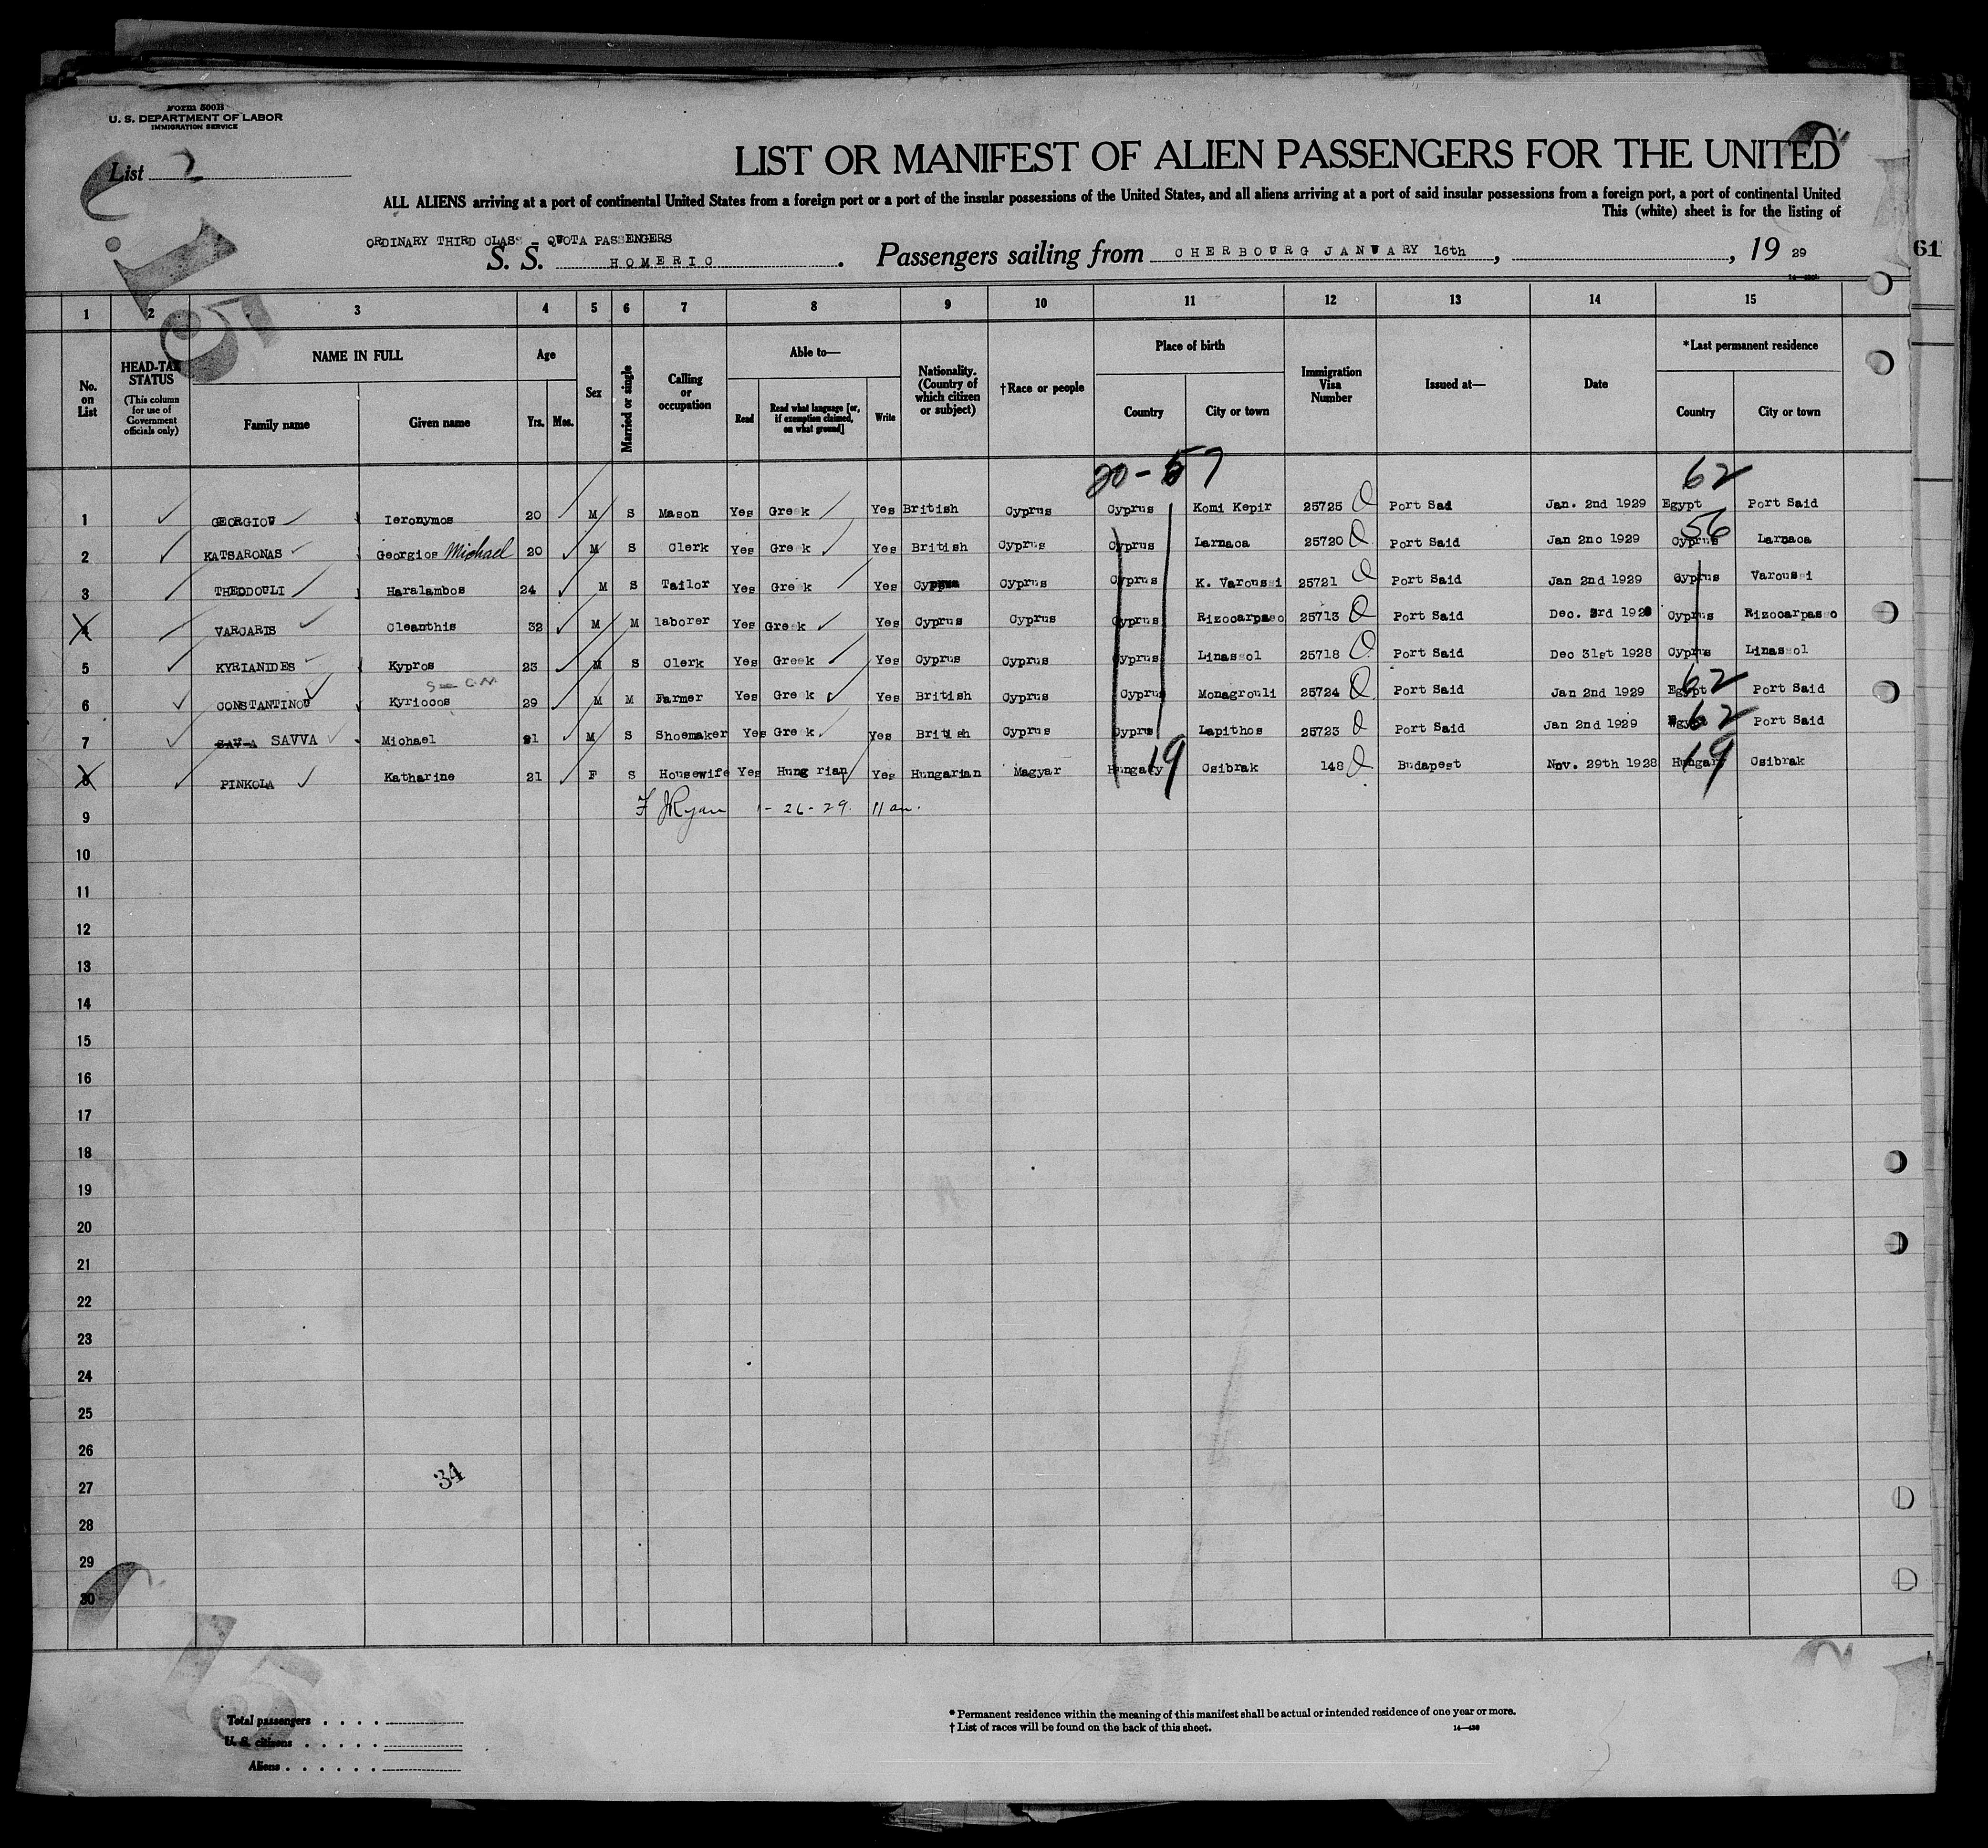 Form 500B
U. S. DEPARTMENT OF LABOR
IMMIGRATION SERVICE
List 2
LIST OR MANIFEST OF ALIEN PASSENGERS FOR THE UNITED
ALL ALIENS arriving at a port of continental United States from a foreign port or a port of the insular possessions of the United States, and all aliens arriving at a port of said insular possessions from a foreign port, a port of continental United
This (white) sheet is for the listing of
ORDINARY THIRD CLASS - QUOTA PASSENGERS
S. S. HOMERIC. Passengers sailing from CHERBOURG JANUARY 16th, , 19 29
61
1 2 3 4 5 6 7 8 9 10 11 12 13 14 15
No. on List
HEAD-TAX STATUS
(This column for use of Government officials only)
NAME IN FULL
Family name Given name
Age
Yrs. Mos.
Sex
Married or single
Calling or occupation
Able to—
Read Read what language [or, if exemption claimed, on what ground] Write
Nationality. (Country of which citizen or subject)
†Race or people
Place of birth
Country City or town
Immigration Visa Number
Issued at—
Date
*Last permanent residence
Country City or town
20-57 62
1 GEORGIOU Ieronymos 20 M S Mason Yes Greek Yes British Cyprus Cyprus Komi Kepir 25725 Port Sad Jan. 2nd 1929 Egypt Port Said
56
2 KATSARONAS Georgios Michael 20 M S Clerk Yes Greek Yes British Cyprus Cyprus Larnaca 25720 Port Said Jan 2nd 1929 Cyprus Larnaca
3 THEODOULI Haralambos 24 M S Tailor Yes Greek Yes Cyprus Cyprus Cyprus K. Varoussi 25721 Port Said Jan 2nd 1929 Cyprus Varoussi
4 VARCARIS Cleanthis 32 M M laborer Yes Greek Yes Cyprus Cyprus Cyprus Rizocarpaso 25713 Port Said Dec. 3rd 1928 Cyprus Rizocarpasso
5 KYRIANIDES Kypros 23 M S Clerk Yes Greek Yes Cyprus Cyprus Cyprus Linassol 25718 Port Said Dec 31st 1928 Cyprus Linassol
62
6 CONSTANTINOU Kyriocos 29 M M Farmer Yes Greek Yes British Cyprus Cyprus Monagrouli 25724 Port Said Jan 2nd 1929 Egypt Port Said
62
7 SAVVA Michael 21 M S Shoemaker Yes Greek Yes British Cyprus Cyprus Lapithos 25723 Port Said Jan 2nd 1929 Egypt Port Said
19 19
8 PINKOLA Katharine 21 F S Housewife Yes Hungarian Yes Hungarian Magyar Hungary Csibrak 148 Budapest Nov. 29th 1928 Hungary Csibrak
F J Ryan 1-26-29. 11 am.
9
10
11
12
13
14
15
16
17
18
19
20
21
22
23
24
25
26
27
28
29
30
34
Total passengers . . . .
U. S. citizens . . . . .
Aliens . . . . . .
* Permanent residence within the meaning of this manifest shall be actual or intended residence of one year or more.
† List of races will be found on the back of this sheet. 14—430